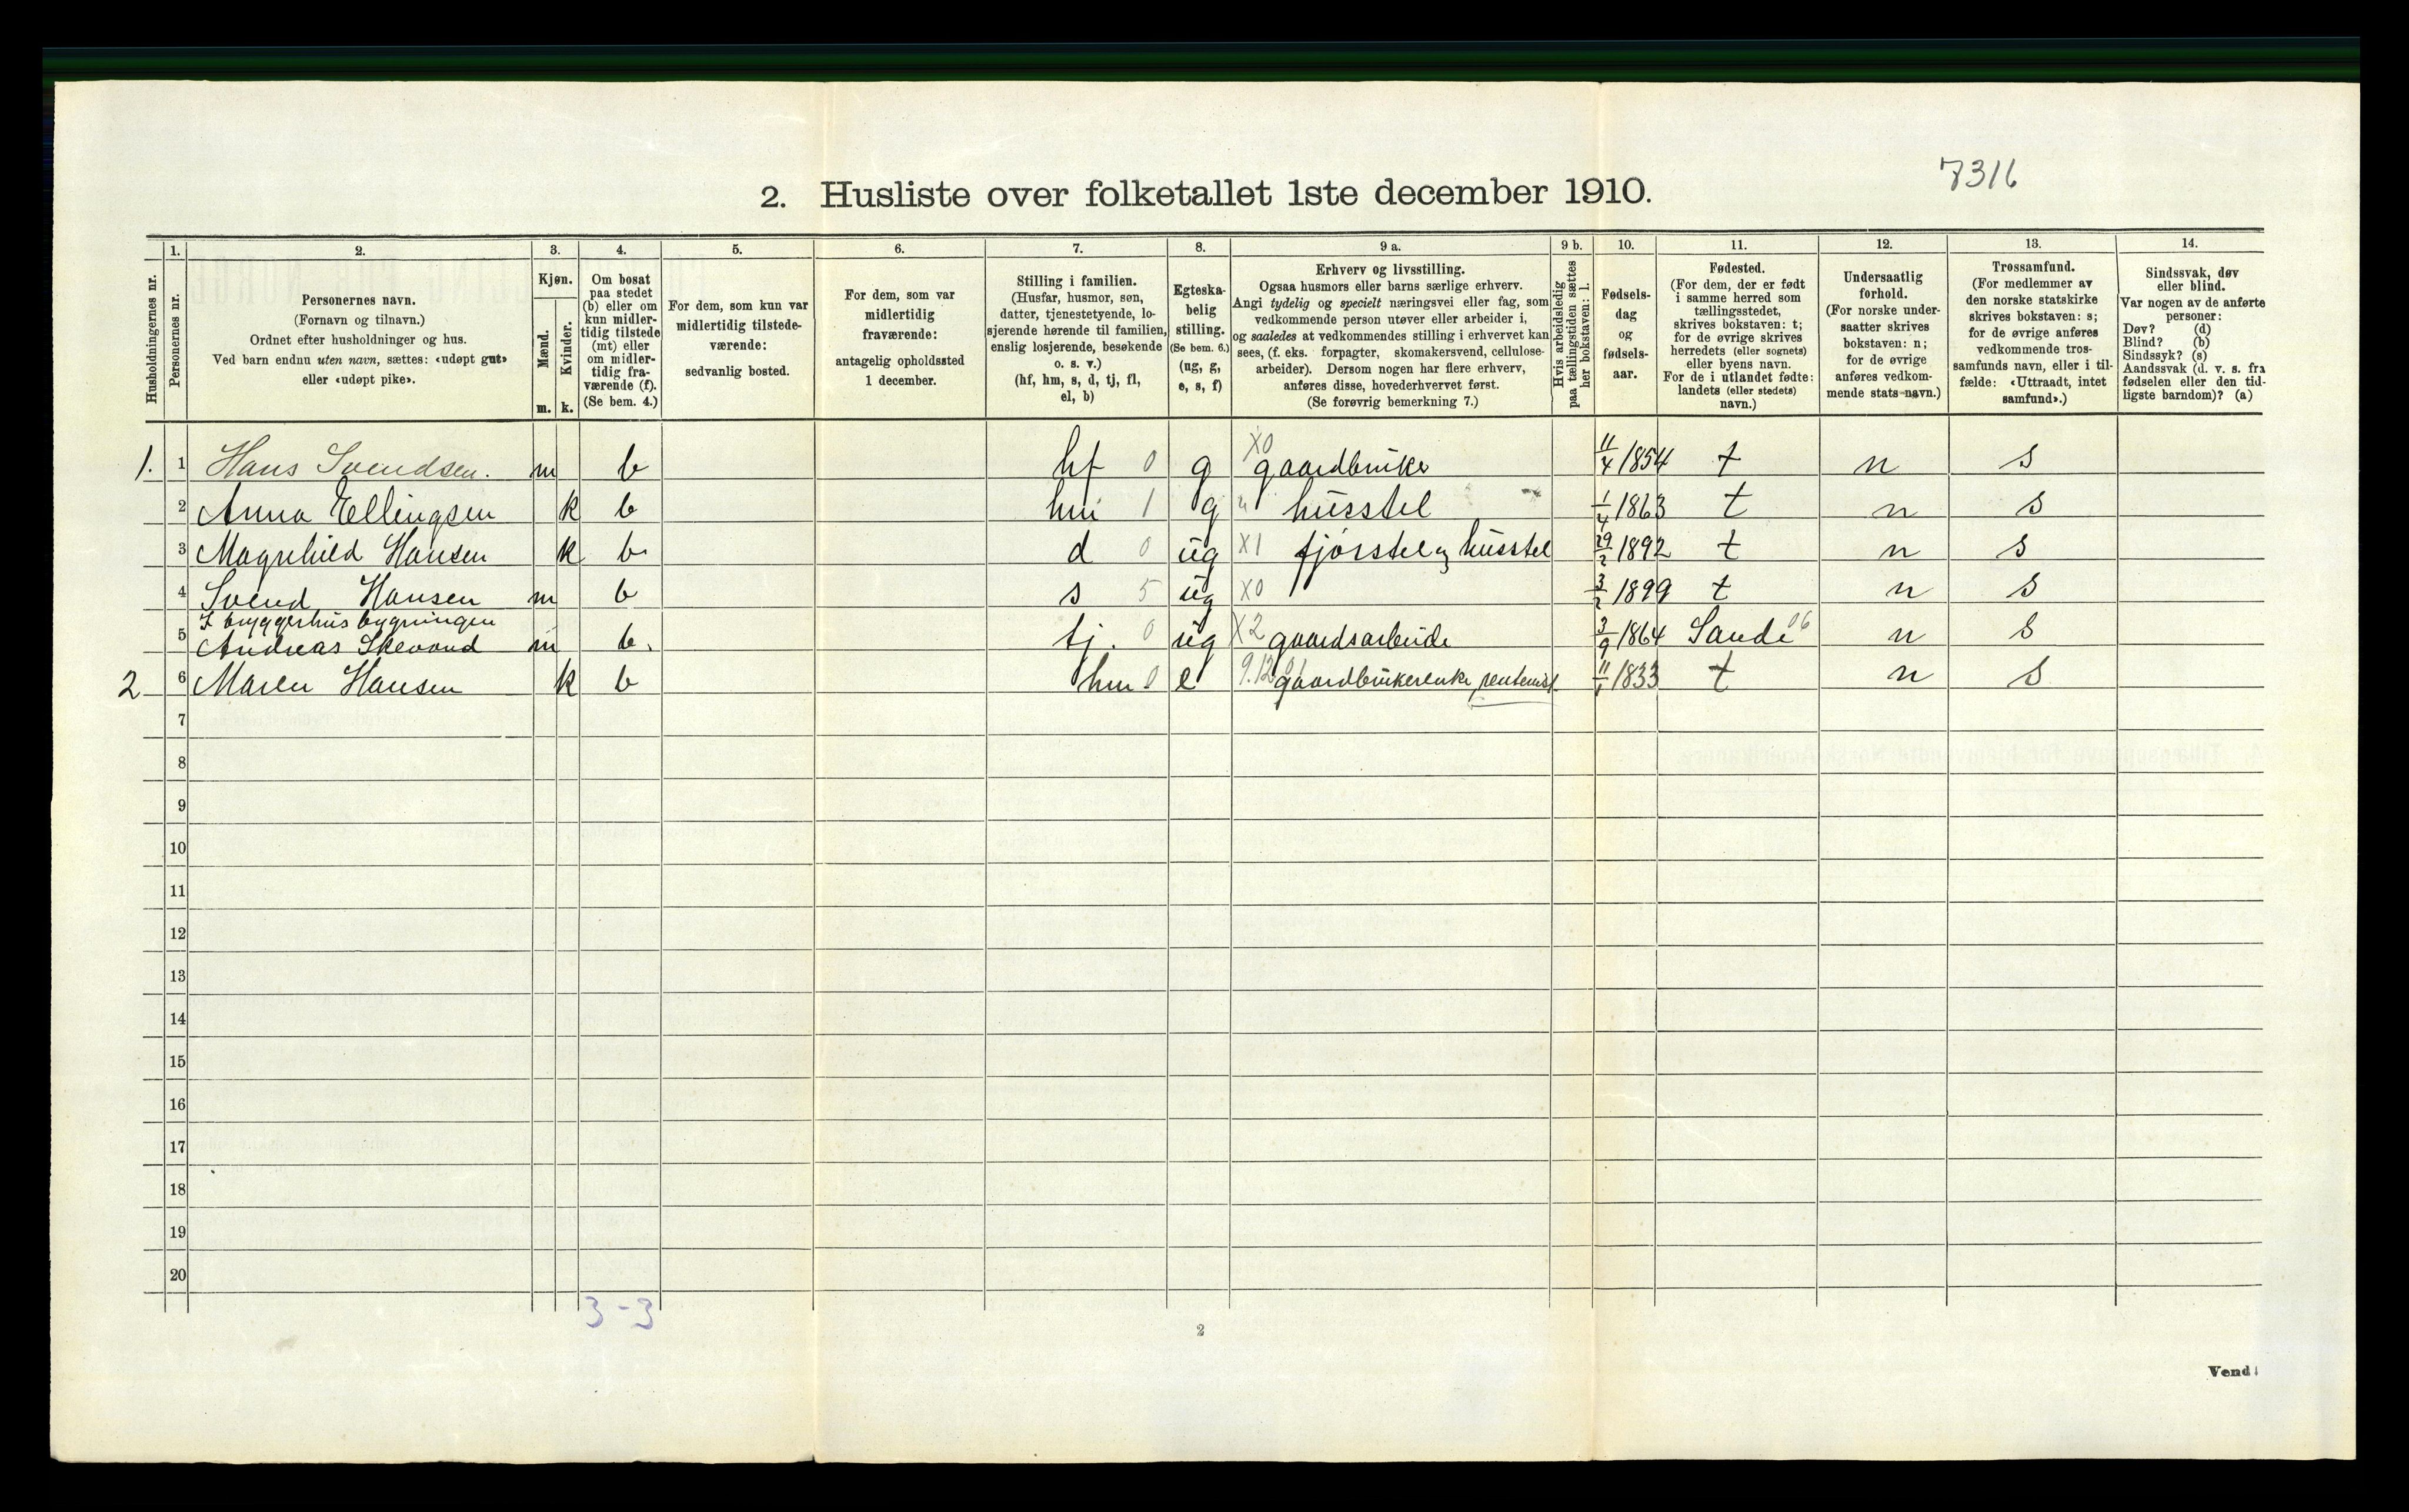 7316
2. Husliste over folketallet 1ste december 1910.
Husholdningernes nr.
1. Personernes nr.
2. Personernes navn.
(Fornavn og tilnavn.)
Ordnet efter husholdninger og hus.
Ved barn endnu uten navn, sættes: «udøpt gut»
eller «udøpt pike».
3. Kjøn.
Mænd. m.
Kvinder. k.
4. Om bosat
paa stedet
(b) eller om
kun midler-
tidig tilstede
(mt) eller
om midler-
tidig fra-
værende (f).
(Se bem. 4.)
5. For dem, som kun var
midlertidig tilstede-
værende:
sedvanlig bosted.
6. For dem, som var
midlertidig
fraværende:
antagelig opholdssted
1 december.
7. Stilling i familien.
(Husfar, husmor, søn,
datter, tjenestetyende, lo-
sjerende hørende til familien,
enslig losjerende, besøkende
o. s. v.)
(hf, hm, s, d, tj, fl,
el, b)
8. Egteska-
belig
stilling.
(Se bem. 6.)
(ug, g,
e, s, f)
9 a. Erhverv og livsstilling.
Ogsaa husmors eller barns særlige erhverv.
Angi tydelig og specielt næringsvei eller fag, som
vedkommende person utøver eller arbeider i,
og saaledes at vedkommendes stilling i erhvervet kan
sees, (f. eks. forpagter, skomakersvend, cellulose-
arbeider). Dersom nogen har flere erhverv,
anføres disse, hovederhvervet først.
(Se forøvrig bemerkning 7.)
9 b. Hvis arbeidsledig
paa tællingstiden sættes
her bokstaven: l.
10. Fødsels-
dag
og
fødsels-
aar.
11. Fødested.
(For dem, der er født
i samme herred som
tællingsstedet,
skrives bokstaven: t;
for de øvrige skrives
herredets (eller sognets)
eller byens navn.
For de i utlandet fødte:
landets (eller stedets)
navn.)
12. Undersaatlig
forhold.
(For norske under-
saatter skrives
bokstaven: n;
for de øvrige
anføres vedkom-
mende stats navn.)
13. Trossamfund.
(For medlemmer av
den norske statskirke
skrives bokstaven: s;
for de øvrige anføres
vedkommende tros-
samfunds navn, eller i til-
fælde: «Uttraadt, intet
samfund».)
14. Sindssvak, døv
eller blind.
Var nogen av de anførte
personer:
Døv? (d)
Blind? (b)
Sindssyk? (s)
Aandssvak (d. v. s. fra
fødselen eller den tid-
ligste barndom)? (a)
1. 1 Hans Svendsen. m b hf 0 g X0 gaardbruker 11/4 1854 t n s
2 Anna Ellingsen k b hm 1 g " husstel 1/4 1863 t n s
3 Magnhild Hansen k b d 0 ug X1 fjøsstel og husstel 29/2 1892 t n s
4 Svend Hansen m b s 5 ug X0 3/2 1899 t n s
I bryggerhusbygningen
5 Andreas Skevand m b. tj. 0 ug X2 gaardsarbeide 3/9 1864 Sande 06 n s
2 6 Maren Hansen k b hm 0 e 9.12 gaardbrukerenke, rentenist 11/1 1833 t n s
7
8
9
10
11
12
13
14
15
16
17
18
19
20
3 - 3
2
Vend!